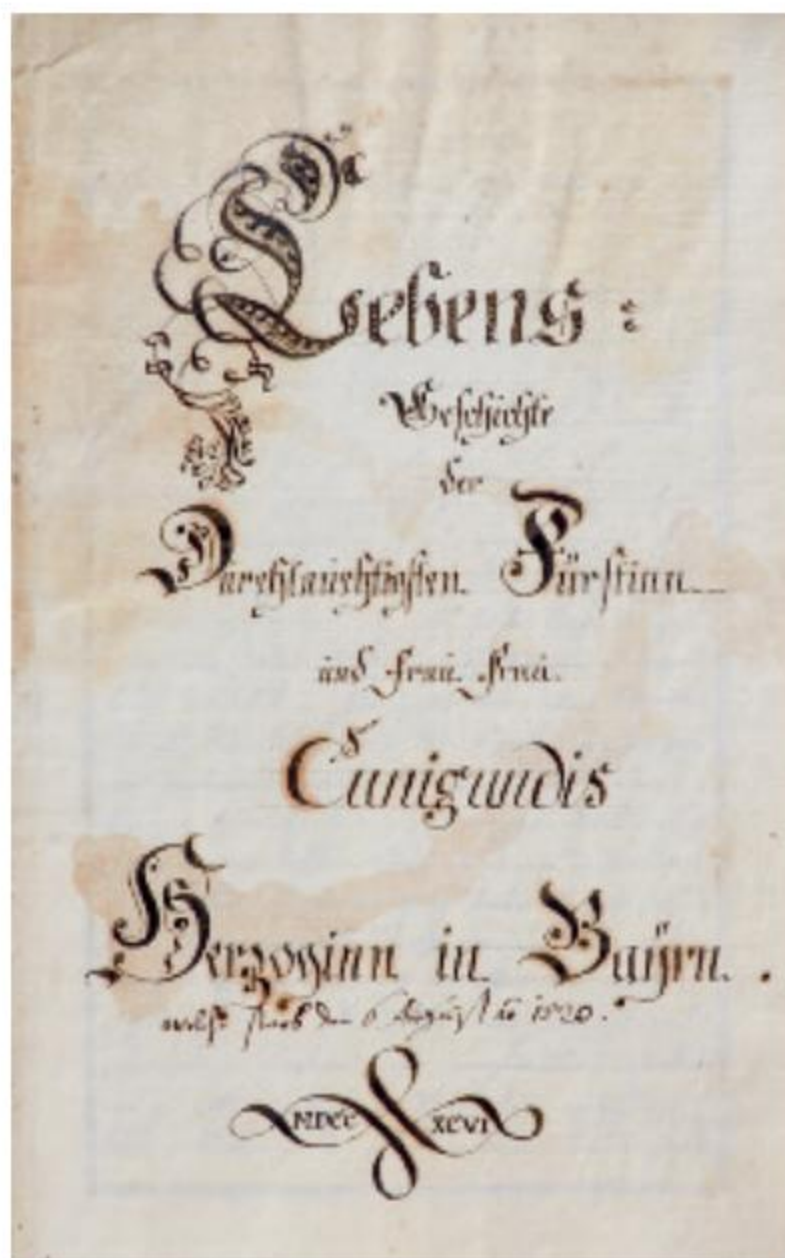 Lebens:
Geschichte
der
Durchlauchtigsten Fürstinn
und Frau Frau
Cunigundis
Herzoginn in Bayrn.
welche starb den 6 August ao 1520.
MDCC XCVI